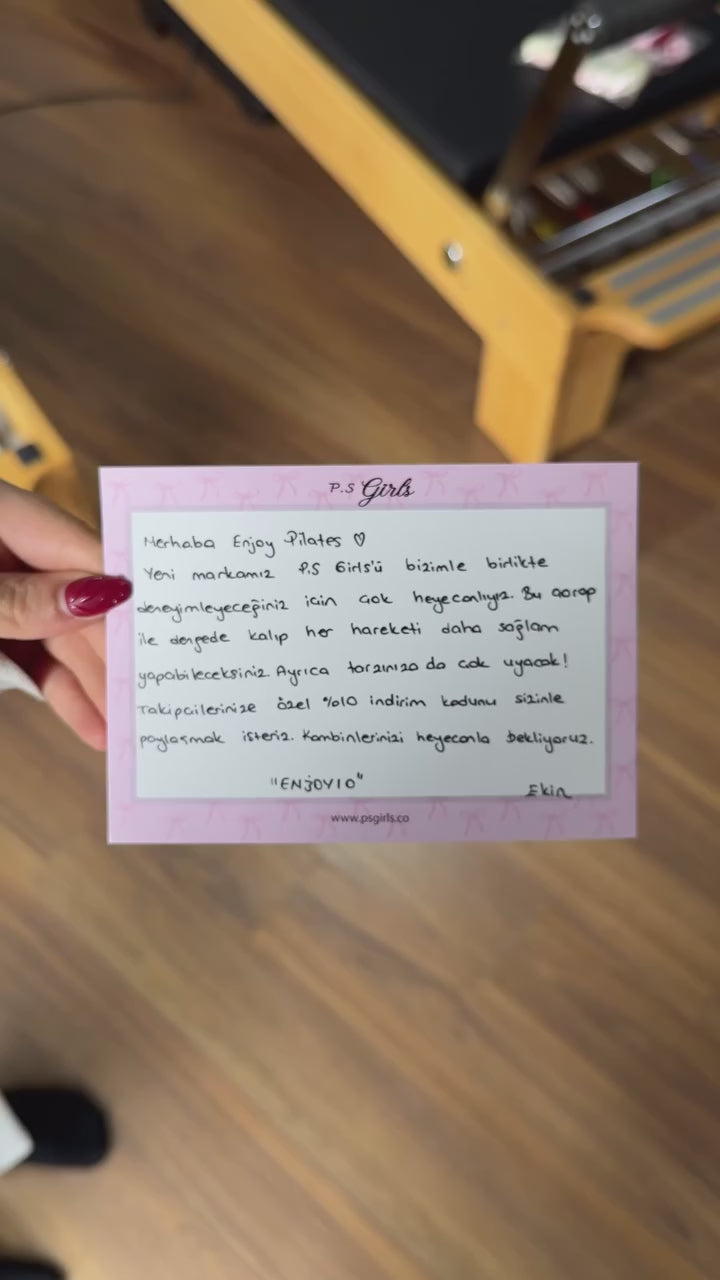 P.S Girls
Merhaba Enjoy Pilates ♡
Yeni markamız P.S Girls'ü bizimle birlikte
deneyimleyeceğiniz için çok heyecanlıyız. Bu çorap
ile dengede kalıp her hareketi daha sağlam
yapabileceksiniz. Ayrıca tarzınıza da çok uyacak!
Takipçilerinize özel %10 indirim kodunu sizinle
paylaşmak isteriz. Kombinlerinizi heyecanla bekliyoruz.
"ENJOY10"
Ekin
www.psgirls.co